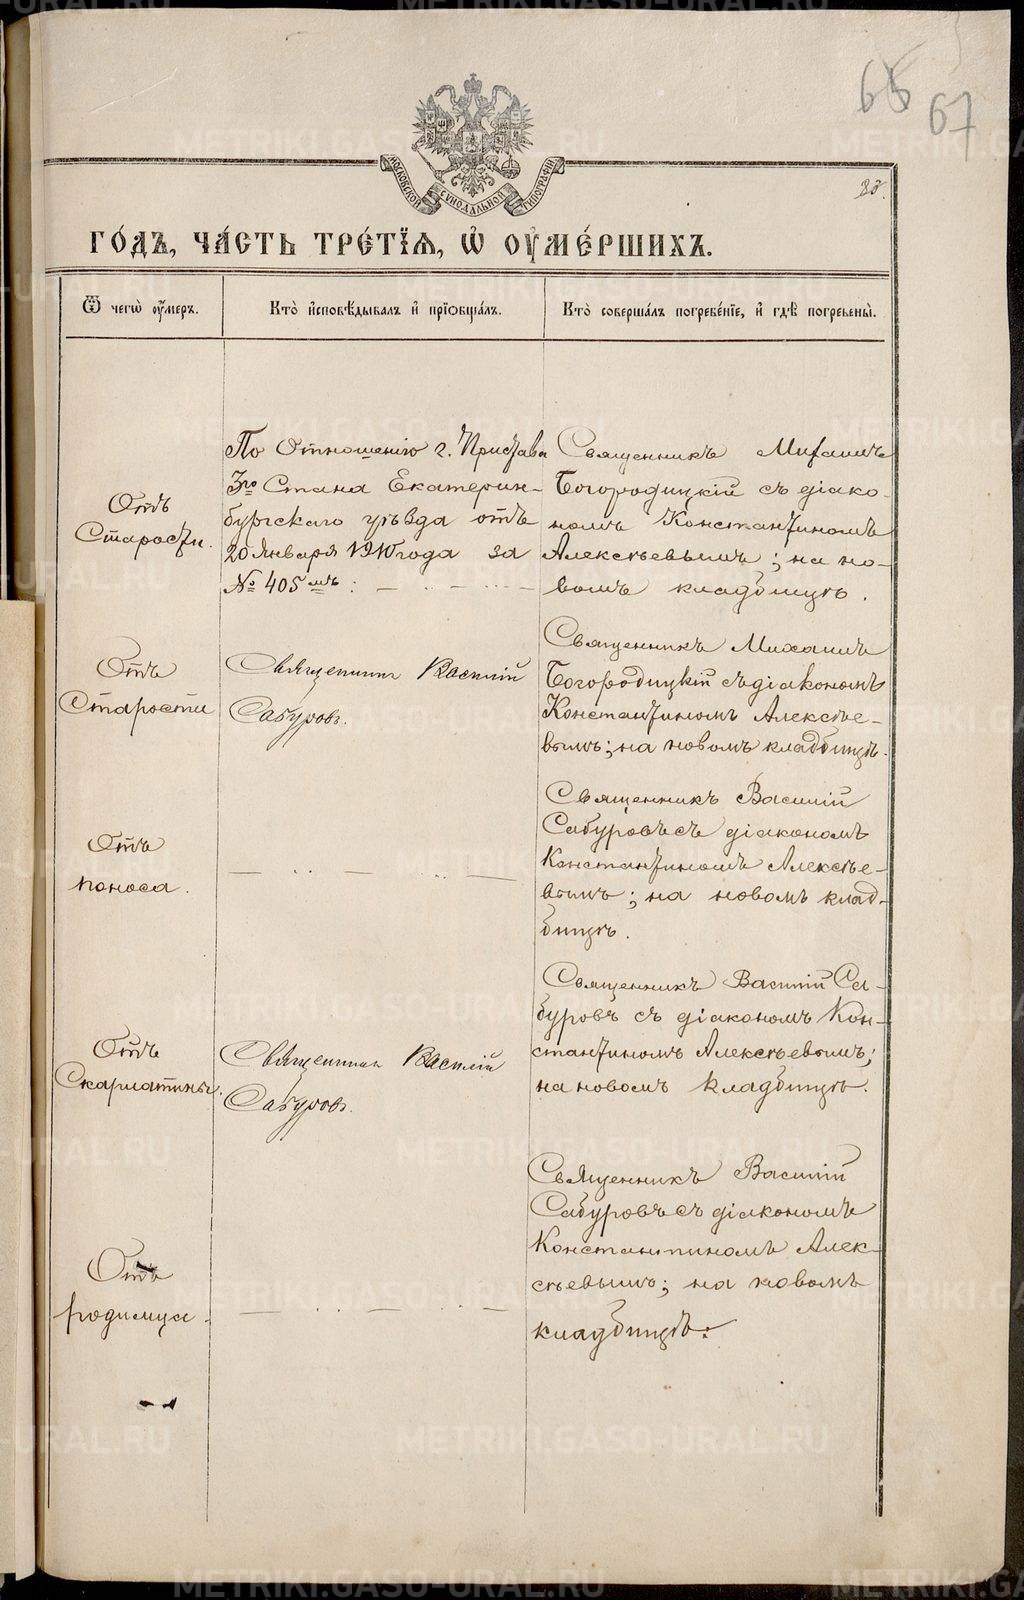 65 67
МОСКОВСКОЙ СѴНОДАЛЬНОЙ ТИПОГРАФІИ
ГО́ДЪ, ЧА́СТЬ ТРЕ́ТЇѦ, Ѡ҆ ОУ҆МЕ́РШИХЪ.
Ѿ чегѡ̀ оу҆́меръ.
Кто̀ и҆сповѣ́дывалъ и҆ прїѻбща́лъ.
Кто̀ соверша́лъ погребе́нїе, и҆ гдѣ̀ погребены̀.
Отъ
Старости.
По Отношенію г. Пристава
3го Стана Екатерин-
бургскаго уѣзда отъ
20 Января 1910 года за
№ 405мъ: —
Священникъ Михаилъ
Богородицкій съ діако-
номъ Константиномъ
Алексѣевымъ; на но-
вомъ кладбищѣ.
Отъ
Старости
Священникъ Василій
Сабуровъ.
Священникъ Михаилъ
Богородицкій съ діакономъ
Константиномъ Алексѣе-
вымъ; на новомъ кладбищѣ.
Отъ
поноса.
Священникъ Василій
Сабуровъ съ діакономъ
Константиномъ Алексѣе-
вымъ; на новомъ клад-
бищѣ.
Отъ
Скарлатины.
Священникъ Василій
Сабуровъ.
Священникъ Василій Са-
буровъ съ діакономъ Кон-
стантиномъ Алексѣевымъ;
на новомъ кладбищѣ.
Отъ
родимца.
Священникъ Василій
Сабуровъ съ діакономъ
Константиномъ Алек-
сѣевымъ; на новомъ
кладбищѣ.
METRIKI.GASO-URAL.RU